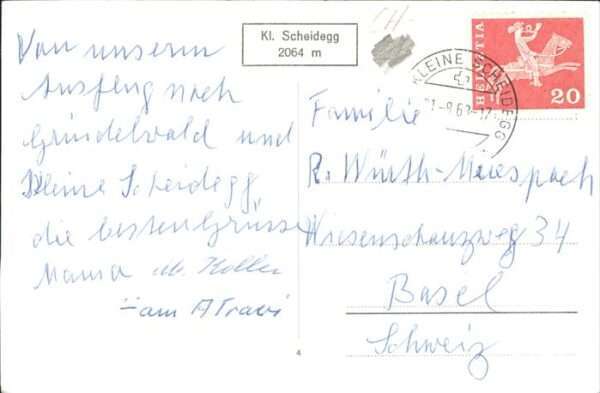 Von unserm
Ausflug nach
Grindelwald und
Kleine Scheidegg,
die besten Grüsse
Mama M. Koller
Kl. Scheidegg
2064 m
CH
HELVETIA
20
KLEINE SCHEIDEGG
Familie
R. Würth-Meiespach
Wiesenschanzweg 34
Basel
Schweiz
4